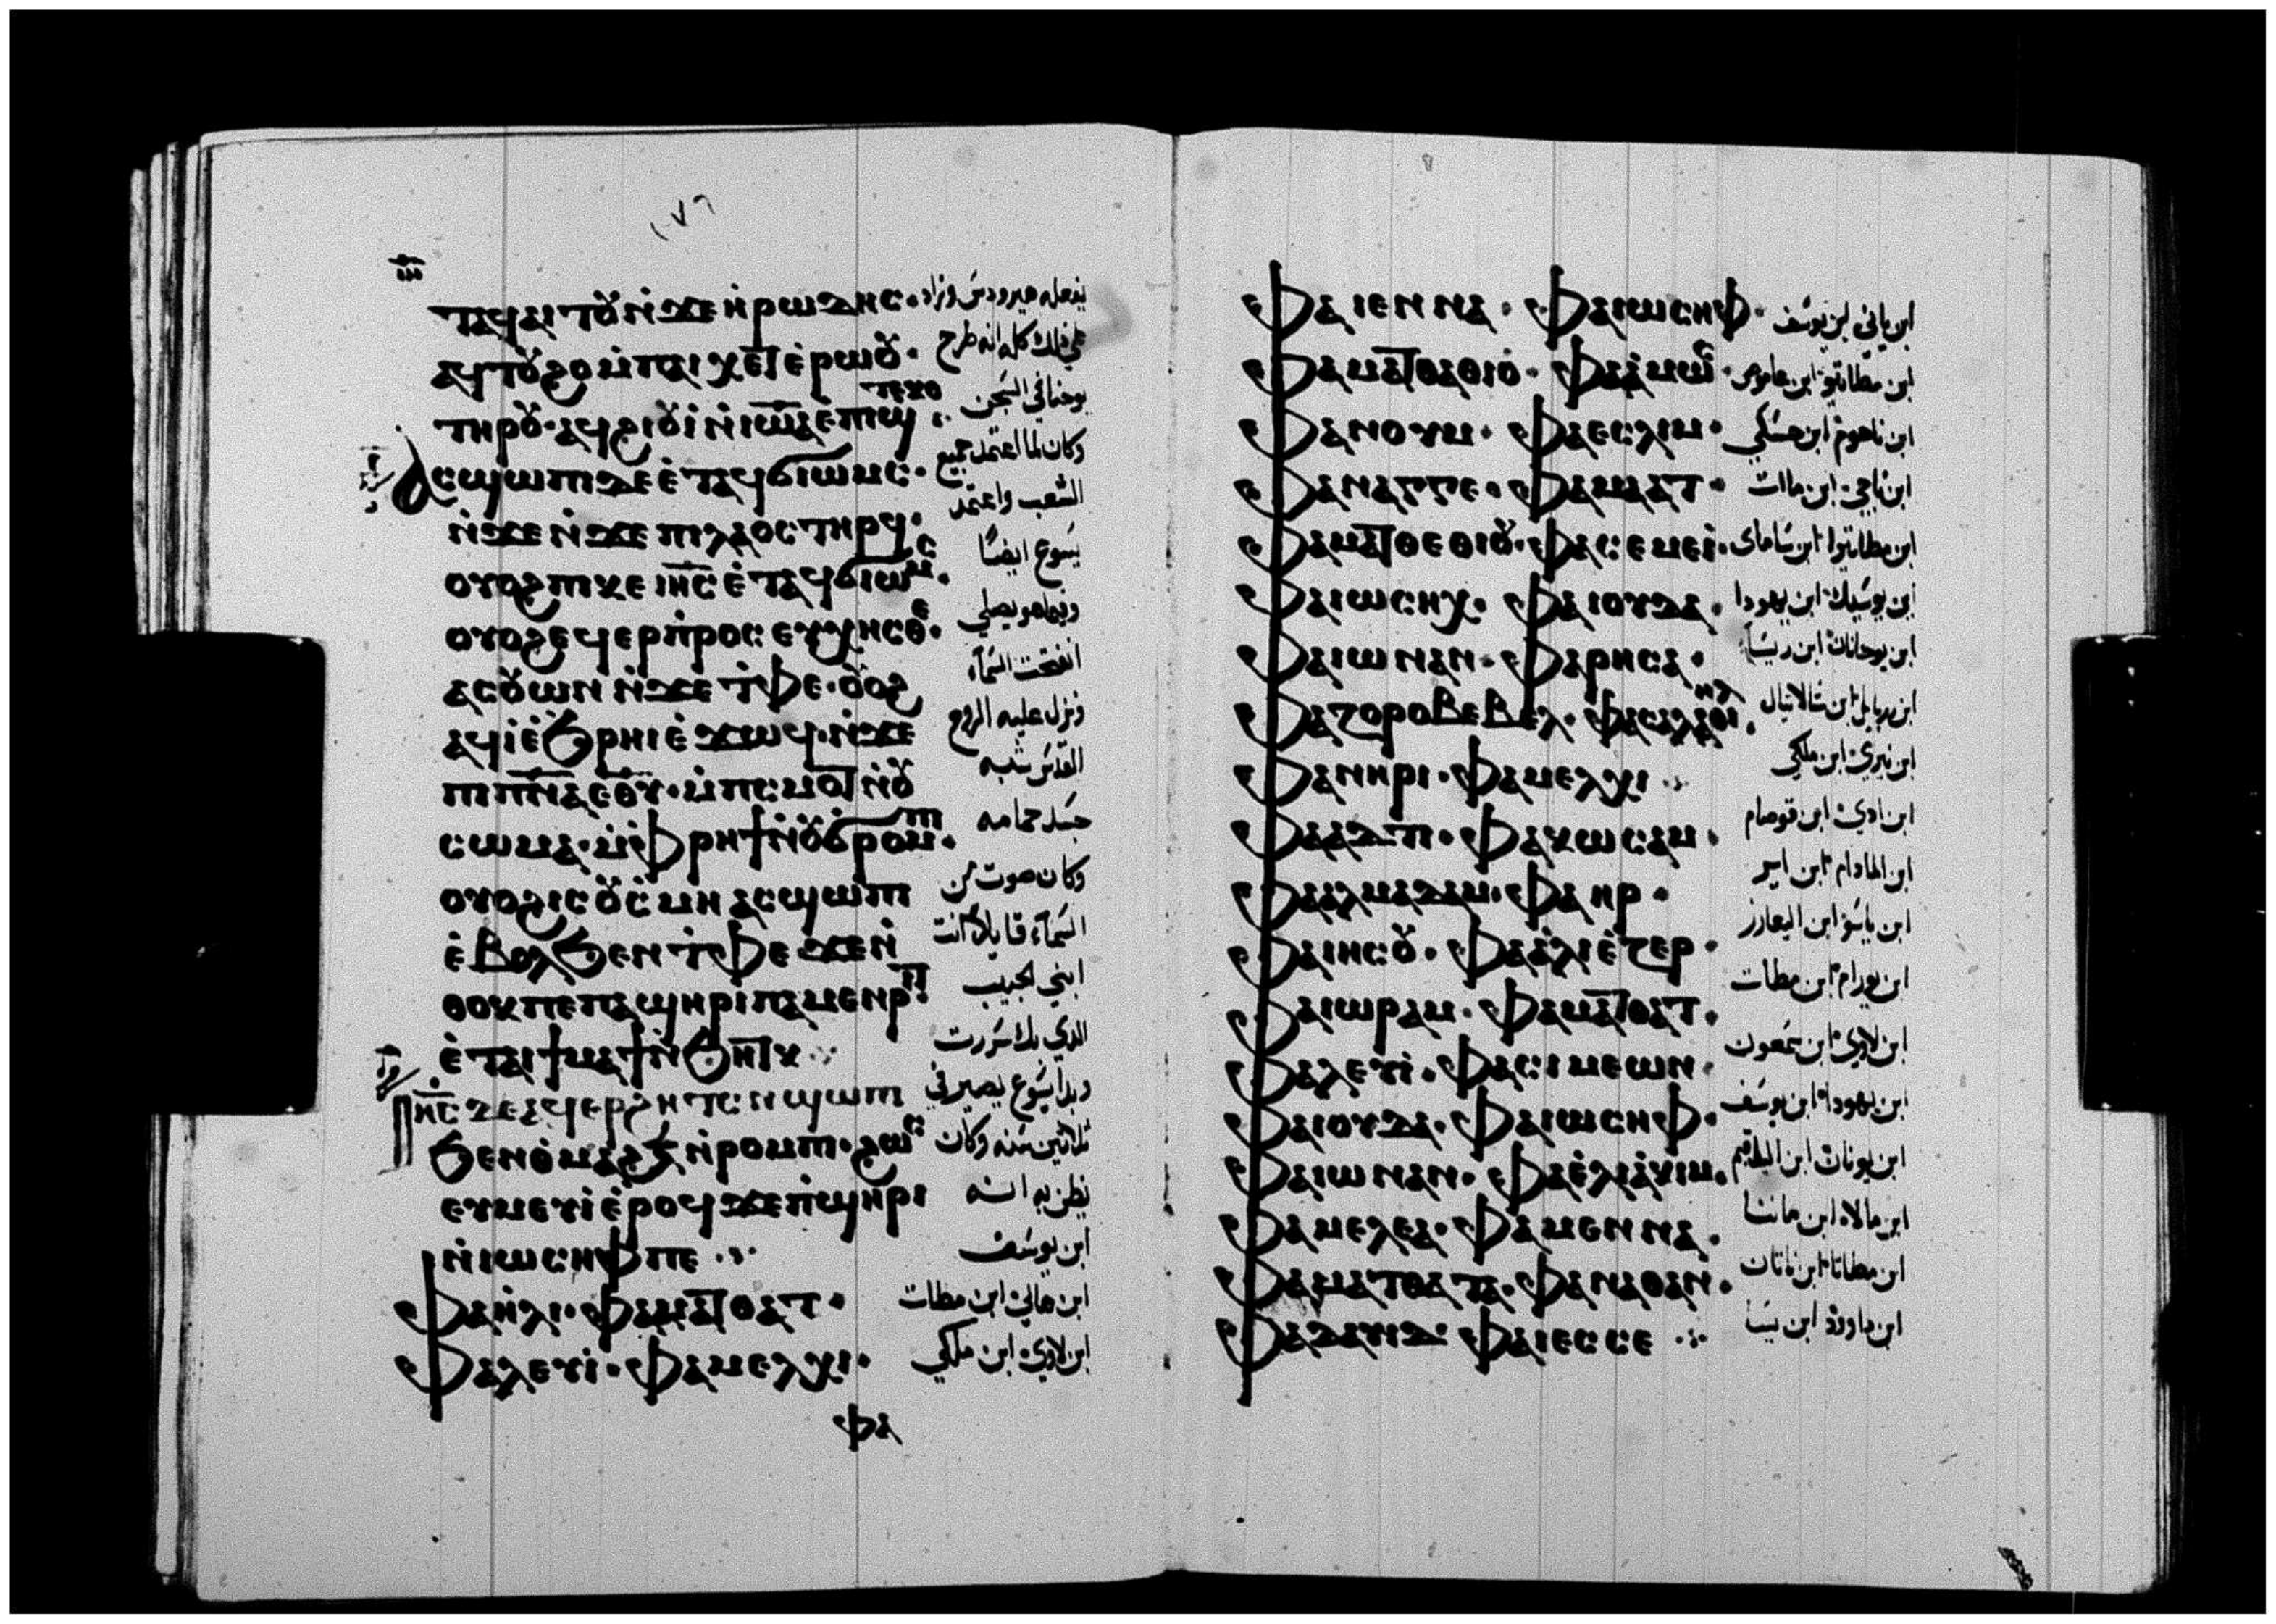 ⲧⲁϥⲁⲓⲧⲟⲩ ⲛ̀ϫⲉ ⲏ̀ⲣⲱⲇⲏⲥ· يفعله هيرودس وزاد
ⲁϥⲧⲟⲩϩⲟ ⲙ̀ⲡⲁⲓⲭⲉⲧ ⲉ̀ⲣⲱⲟⲩ· علي ذلك كله انه طرح
ⲧⲏⲣⲟⲩ· ⲁϥϩⲓⲟⲩⲓ̀ ⲛ̀ⲓⲱⲁ ⲉ̀ⲡϣⲧⲉⲕⲟ يوحنا في السجن
ⲁⲥϣⲱⲡⲓ ⲇⲉ ⲉ̀ⲧⲁϥϭⲓⲱⲙⲥ· وكان لما اعتمد جميع
ⲛ̀ϫⲉ ⲛ̀ϫⲉ ⲡⲓⲗⲁⲟⲥ ⲧⲏⲣϥ· الشعب واعتمد
ⲟⲩⲟϩ ⲡⲓⲕⲉ ⲓⲏⲥ ⲉ̀ⲧⲁϥϭⲓⲱⲙⲥ· يسوع ايضًا
ⲟⲩⲟϩ ⲉϥⲉⲣⲡ̀ⲣⲟⲥⲉⲩⲭⲏⲥⲑⲉ· وفيما هو يصلي
ⲁⲥⲟⲩⲱⲛ ⲛ̀ϫⲉ ⲧ̀ⲫⲉ· ⲟⲩⲟϩ انفتحت السمآء
ⲁϥⲓ̀ ⲉ̀ϧⲣⲏⲓ ⲉ̀ϫⲱϥ· ⲛ̀ϫⲉ ونزل عليه الروح
ⲡⲓⲡⲛⲁ ⲉⲑⲩ· ⲙ̀ⲡⲥⲙⲟⲧ ⲛ̀ⲟⲩ القدس شبه
ⲥⲱⲙⲁ· ⲙ̀ⲫⲣⲏϯ ⲛ̀ⲟⲩϭⲣⲟⲙⲡⲓ· جسد حمامه
ⲟⲩⲟϩ ⲓⲥ ⲟⲩⲥ̀ⲙⲏ ⲁⲥϣⲱⲡⲓ وكان صوت من
ⲉ̀ⲃⲟⲗ ϧⲉⲛ ⲧ̀ⲫⲉ ϫⲉ ⲛ̀ السمآء قايلاً انت
ⲑⲟⲕ ⲡⲉ ⲡⲁϣⲏⲣⲓ ⲡⲁⲙⲉⲛⲣⲓⲧ ابني الحبيب
ⲉ̀ⲧⲁⲓϯⲙⲁϯ ⲛ̀ϧⲏⲧⲕ الذي بك سررت
ⲓⲏⲥ ⲇⲉ ⲁϥⲉⲣϩⲏⲧⲥ ⲛ ϣⲱⲡⲓ وبدا يسوع يصير في
ϧⲉⲛ ⲑ̀ⲙⲁϩ ⲗ̅ ⲛ̀ⲣⲟⲙⲡⲓ· ϩⲱⲥ ثلاثين سنه وكان
ⲉⲩⲙⲉⲩⲓ̀ ⲉ̀ⲣⲟϥ ϫⲉ ⲡ̀ϣⲏⲣⲓ يظن به انه
ⲛ̀ⲓⲱⲥⲏⲫ ⲡⲉ ابن يوسف
ⲫⲁ ⲏ̀ⲗⲓ· ⲫⲁ ⲙⲁⲧⲑⲁⲧ· ابن هالي ابن مطات
ⲫⲁ ⲗⲉⲩⲓ̀· ⲫⲁ ⲙⲉⲗⲭⲓ· ابن لاوي ابن ملكي
ⲫⲁ
ⲫⲁ ⲓⲉⲛⲛⲁ· ⲫⲁ ⲓⲱⲥⲏⲫ· ابن ياني ابن يوسف
ⲫⲁ ⲙⲁⲧⲑⲁⲑⲓⲟⲩ· ⲫⲁ ⲁ̀ⲙⲱⲥ· ابن مطاتيو ابن عاموص
ⲫⲁ ⲛⲟⲩⲙ· ⲫⲁ ⲉⲥⲗⲓⲙ· ابن ناحوم ابن حسكي
ⲫⲁ ⲛⲁⲅⲅⲉ· ⲫⲁ ⲙⲁⲁⲧ· ابن ناجي ابن ماات
ⲫⲁ ⲙⲁⲧⲑⲉⲑⲓⲟⲩ· ⲫⲁ ⲥⲉⲙⲉⲓ̀· ابن مطاتيوا ابن ساماي
ⲫⲁ ⲓⲱⲥⲏⲭ· ⲫⲁ ⲓⲟⲩⲇⲁ· ابن يوسيك ابن يهودا
ⲫⲁ ⲓⲱⲛⲁⲛ· ⲫⲁ ⲣⲏⲥⲁ· ابن يوحانان ابن ريسآ
ⲫⲁ ⲍⲟⲣⲟⲃⲉⲃⲉⲗ· ⲫⲁ ⲥⲁⲗⲁⲑⲓⲏⲗ· ابن زربابل ابن شالاتيال
ⲫⲁ ⲛⲏⲣⲓ· ⲫⲁ ⲙⲉⲗⲭⲓ ابن نيري ابن ملكي
ⲫⲁ ⲁⲇⲇⲓ· ⲫⲁ ⲕⲱⲥⲁⲙ· ابن ادي ابن قوصام
ⲫⲁ ⲁⲗⲙⲁⲇⲁⲙ· ⲫⲁ ⲏⲣ· ابن المادام ابن اير
ⲫⲁ ⲓⲏⲥⲟⲩ· ⲫⲁ ⲁ̀ⲗⲓⲉ̀ⲍⲉⲣ· ابن ياسو ابن اليعازر
ⲫⲁ ⲓⲱⲣⲁⲙ· ⲫⲁ ⲙⲁⲧⲑⲁⲧ· ابن يورام ابن مطات
ⲫⲁ ⲗⲉⲩⲓ̀· ⲫⲁ ⲥⲓⲙⲉⲱⲛ· ابن لاوي ابن سمعون
ⲫⲁ ⲓⲟⲩⲇⲁ· ⲫⲁ ⲓⲱⲥⲏⲫ· ابن يهودا ابن يوسف
ⲫⲁ ⲓⲱⲛⲁⲛ· ⲫⲁ ⲉ̀ⲗⲓⲁ̀ⲕⲓⲙ· ابن يونان ابن الياقيم
ⲫⲁ ⲙⲉⲗⲉⲁ· ⲫⲁ ⲙⲉⲛⲛⲁ· ابن مالاه ابن مانتا
ⲫⲁ ⲙⲁⲧⲑⲁⲧⲁ· ⲫⲁ ⲛⲁⲑⲁⲛ· ابن مطاتا ابن ناتان
ⲫⲁ ⲇⲁⲩⲓⲇ· ⲫⲁ ⲓⲉⲥⲥⲉ ابن داوود ابن يسا